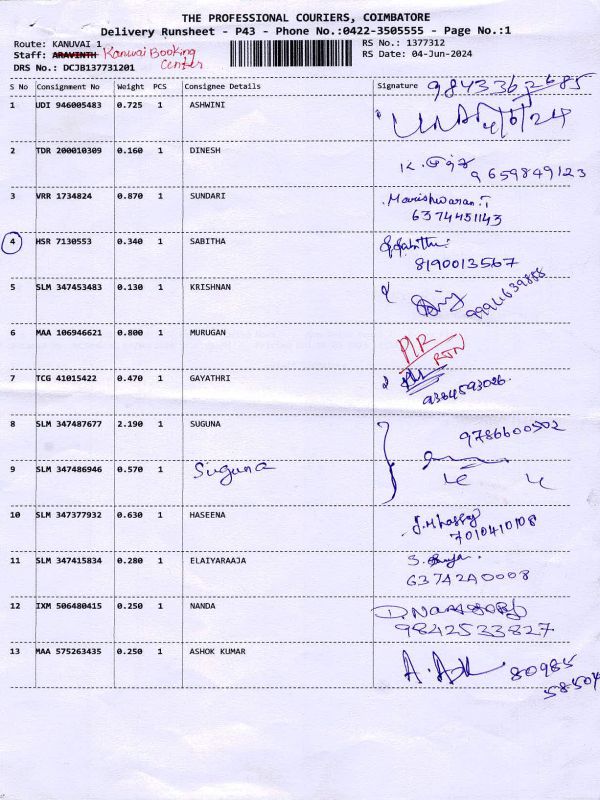 THE PROFESSIONAL COURIERS, COIMBATORE
Delivery Runsheet - P43 - Phone No.:0422-3505555 - Page No.:1
Route: KANUVAI 1 RS No.: 1377312
Staff: ARAVINTH Kanuvai Booking Center RS Date: 04-Jun-2024
DRS No.: DCJB137731201
S No Consignment No Weight PCS Consignee Details Signature
1 UDI 946005483 0.725 1 ASHWINI 4/6/24
2 TDR 200010309 0.160 1 DINESH 9659849123
3 VRR 1734824 0.870 1 SUNDARI Marishwaran.T
6374451143
4 HSR 7130553 0.340 1 SABITHA
8190013567
5 SLM 347453483 0.130 1 KRISHNAN
6 MAA 106946621 0.800 1 MURUGAN
RTN
7 TCG 41015422 0.470 1 GAYATHRI
9384593026
8 SLM 347487677 2.190 1 SUGUNA 9786600502
9 SLM 347486946 0.570 1 Suguna
10 SLM 347377932 0.630 1 HASEENA
7010410108
11 SLM 347415834 0.280 1 ELAIYARAAJA
6374240008
12 IXM 506480415 0.250 1 NANDA
9842533827
13 MAA 575263435 0.250 1 ASHOK KUMAR 80985
58504